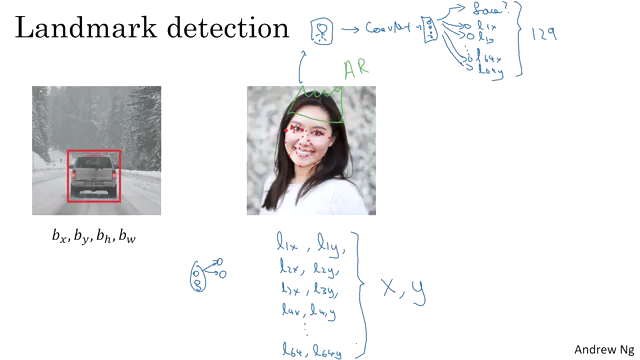 Landmark detection
→ ConvNet → Face?
l1x
l1y
⋮
l64x
l64y
129
AR
bx, by, bh, bw
l1x, l1y,
l2x, l2y,
l2x, l3y,
l4x, l4y
⋮
l64, l64y
x, y
Andrew Ng